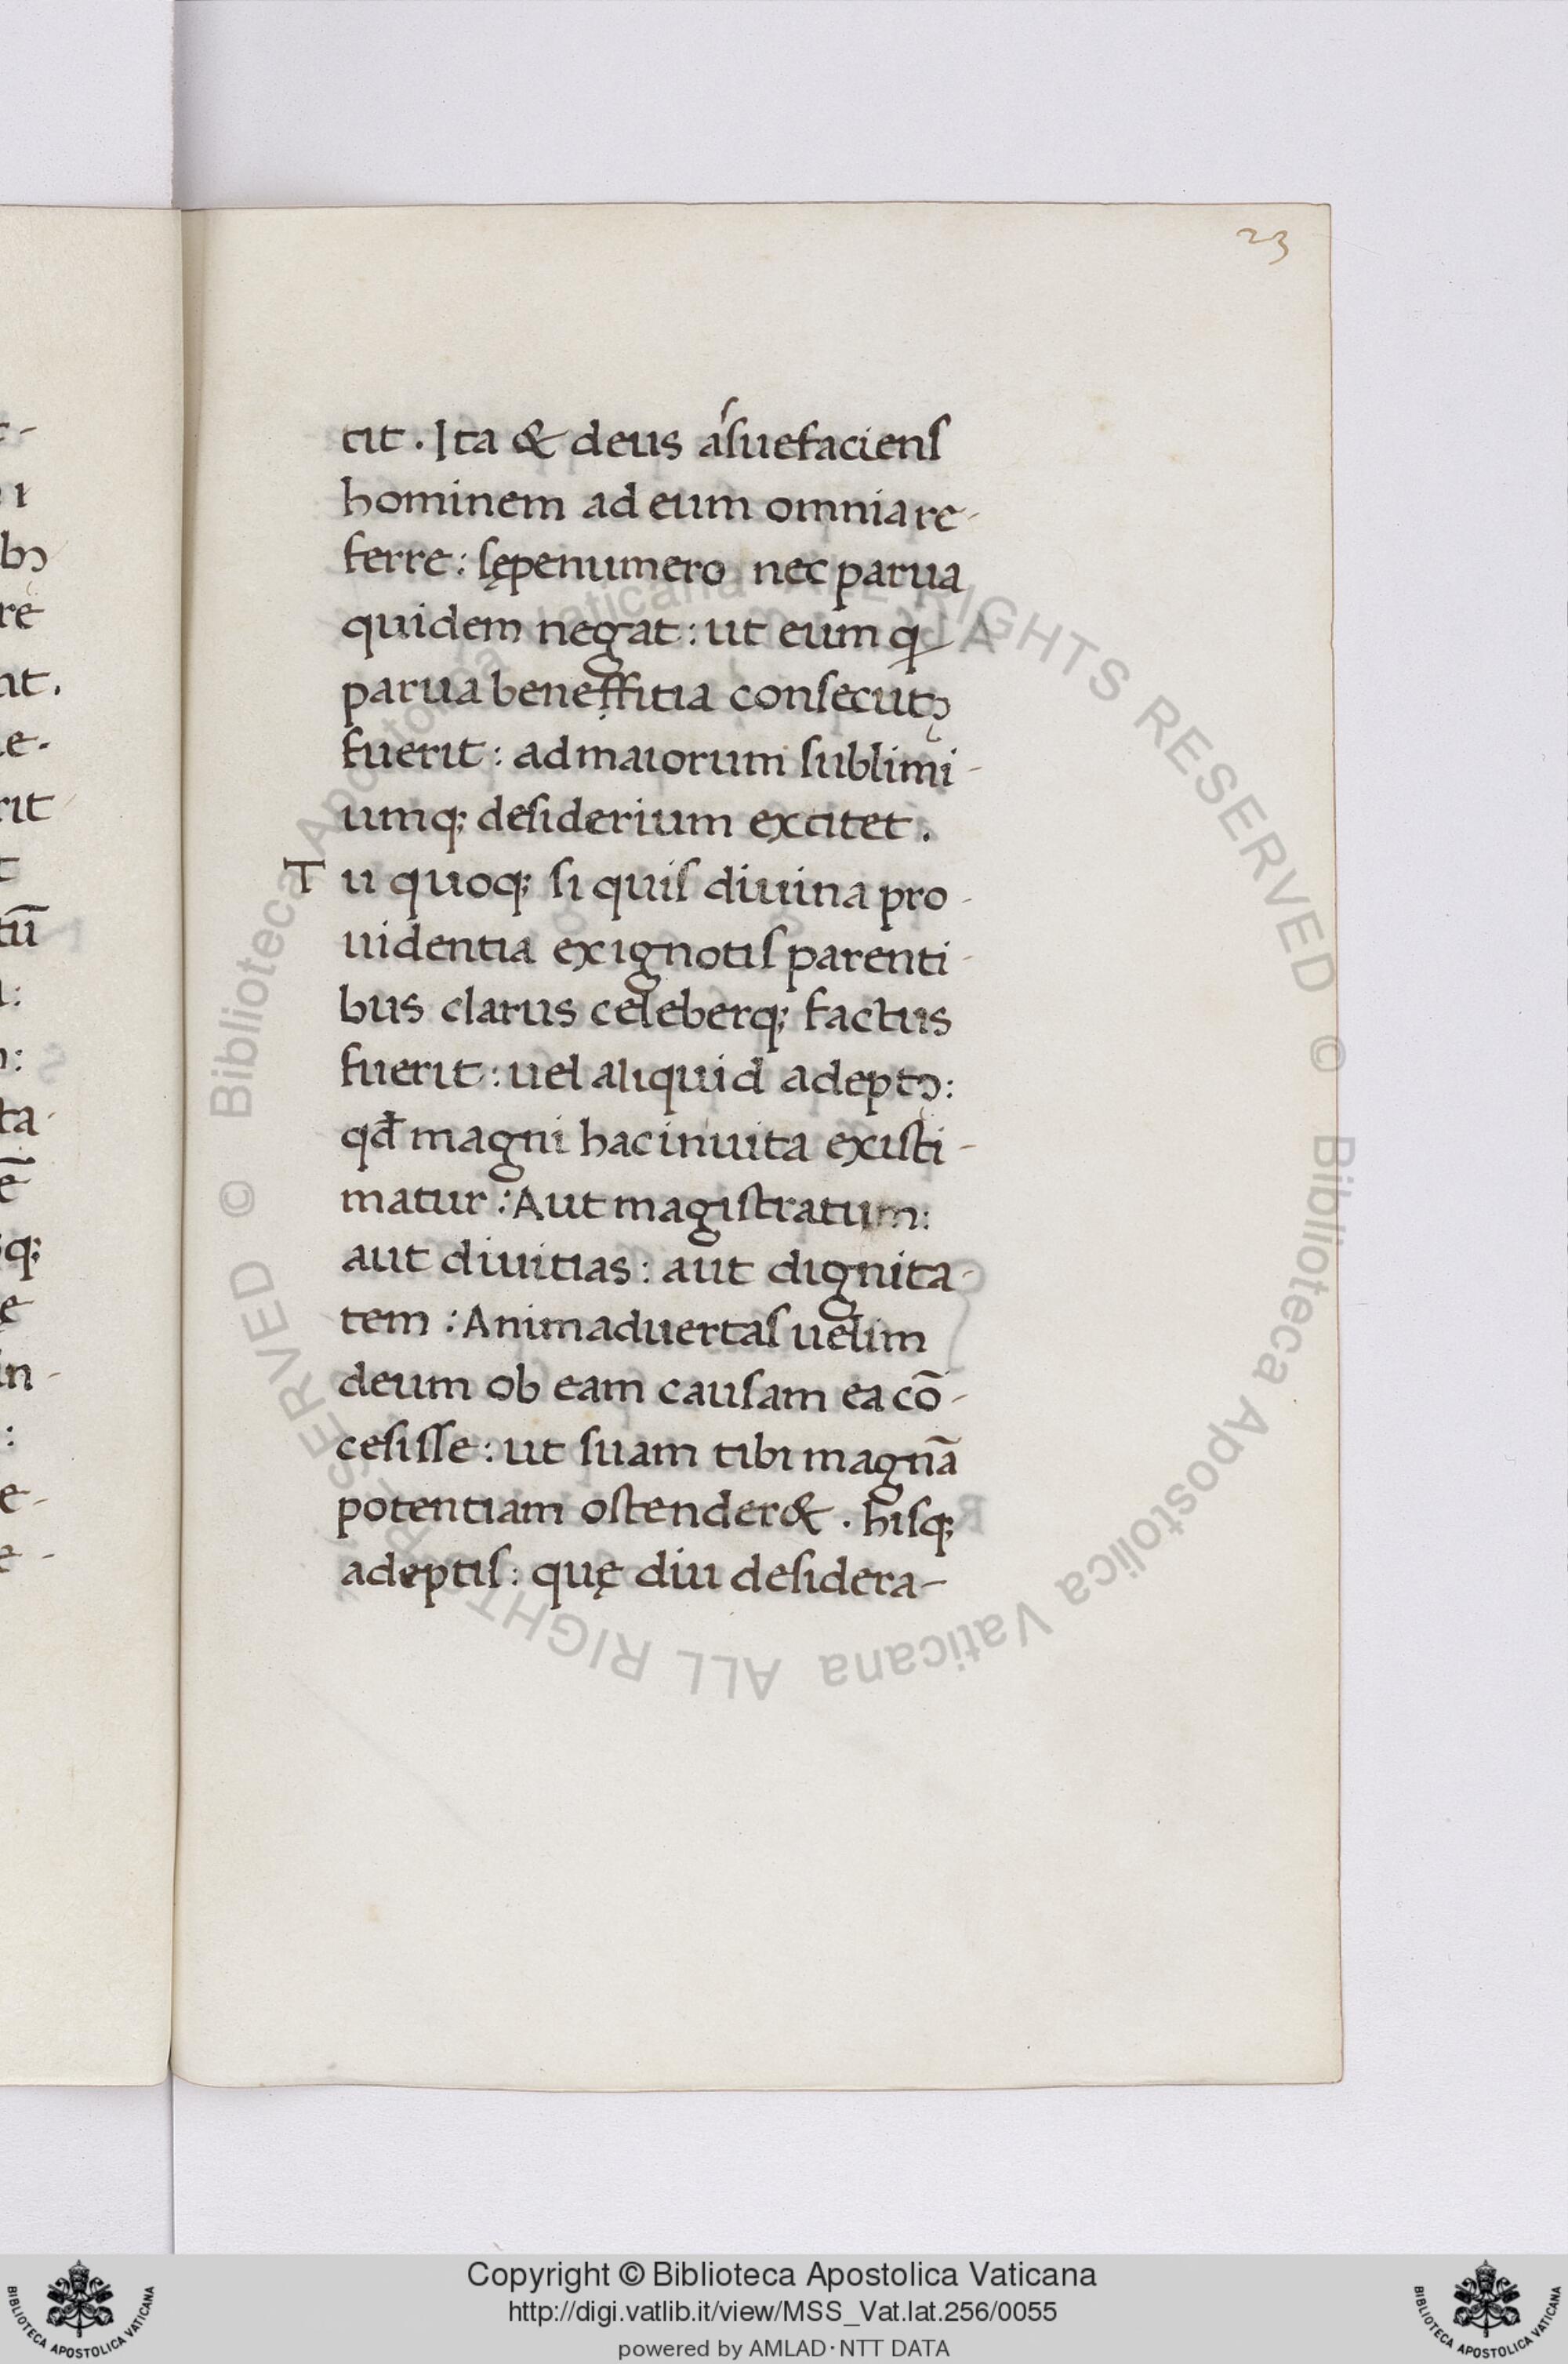 23
tit . Ita & deus aſſuefacienſ
hominem ad eum omnia re-
ferre : ſępenumero nec parua
quidem negat : ut eum ꝙ
parua beneffitia conſecutꝰ
fuerit : ad maiorum ſublimi-
umq; deſiderium excitet .
Tu quoq; ſi quiſ diuina pro-
uidentia ex ignotiſ parenti-
bus clarus celeberq; factus
fuerit : uel aliquid adeptꝰ :
qd̄ magni hac in uita exiſti-
matur : Aut magiſtratum :
aut diuitias : aut dignita-
tem : Animaduertaſ uelim
deum ob eam cauſam ea cō-
ceſiſſe : ut ſuam tibi magnā
potentiam oſtender& . hiſq;
adeptiſ : quę diu deſidera-
© Biblioteca Apostolica Vaticana ALL RIGHTS RESERVED © Biblioteca Apostolica Vaticana ALL RIGHTS RESERVED
Copyright © Biblioteca Apostolica Vaticana
http://digi.vatlib.it/view/MSS_Vat.lat.256/0055
powered by AMLAD·NTT DATA
BIBLIOTECA APOSTOLICA VATICANA
BIBLIOTECA APOSTOLICA VATICANA